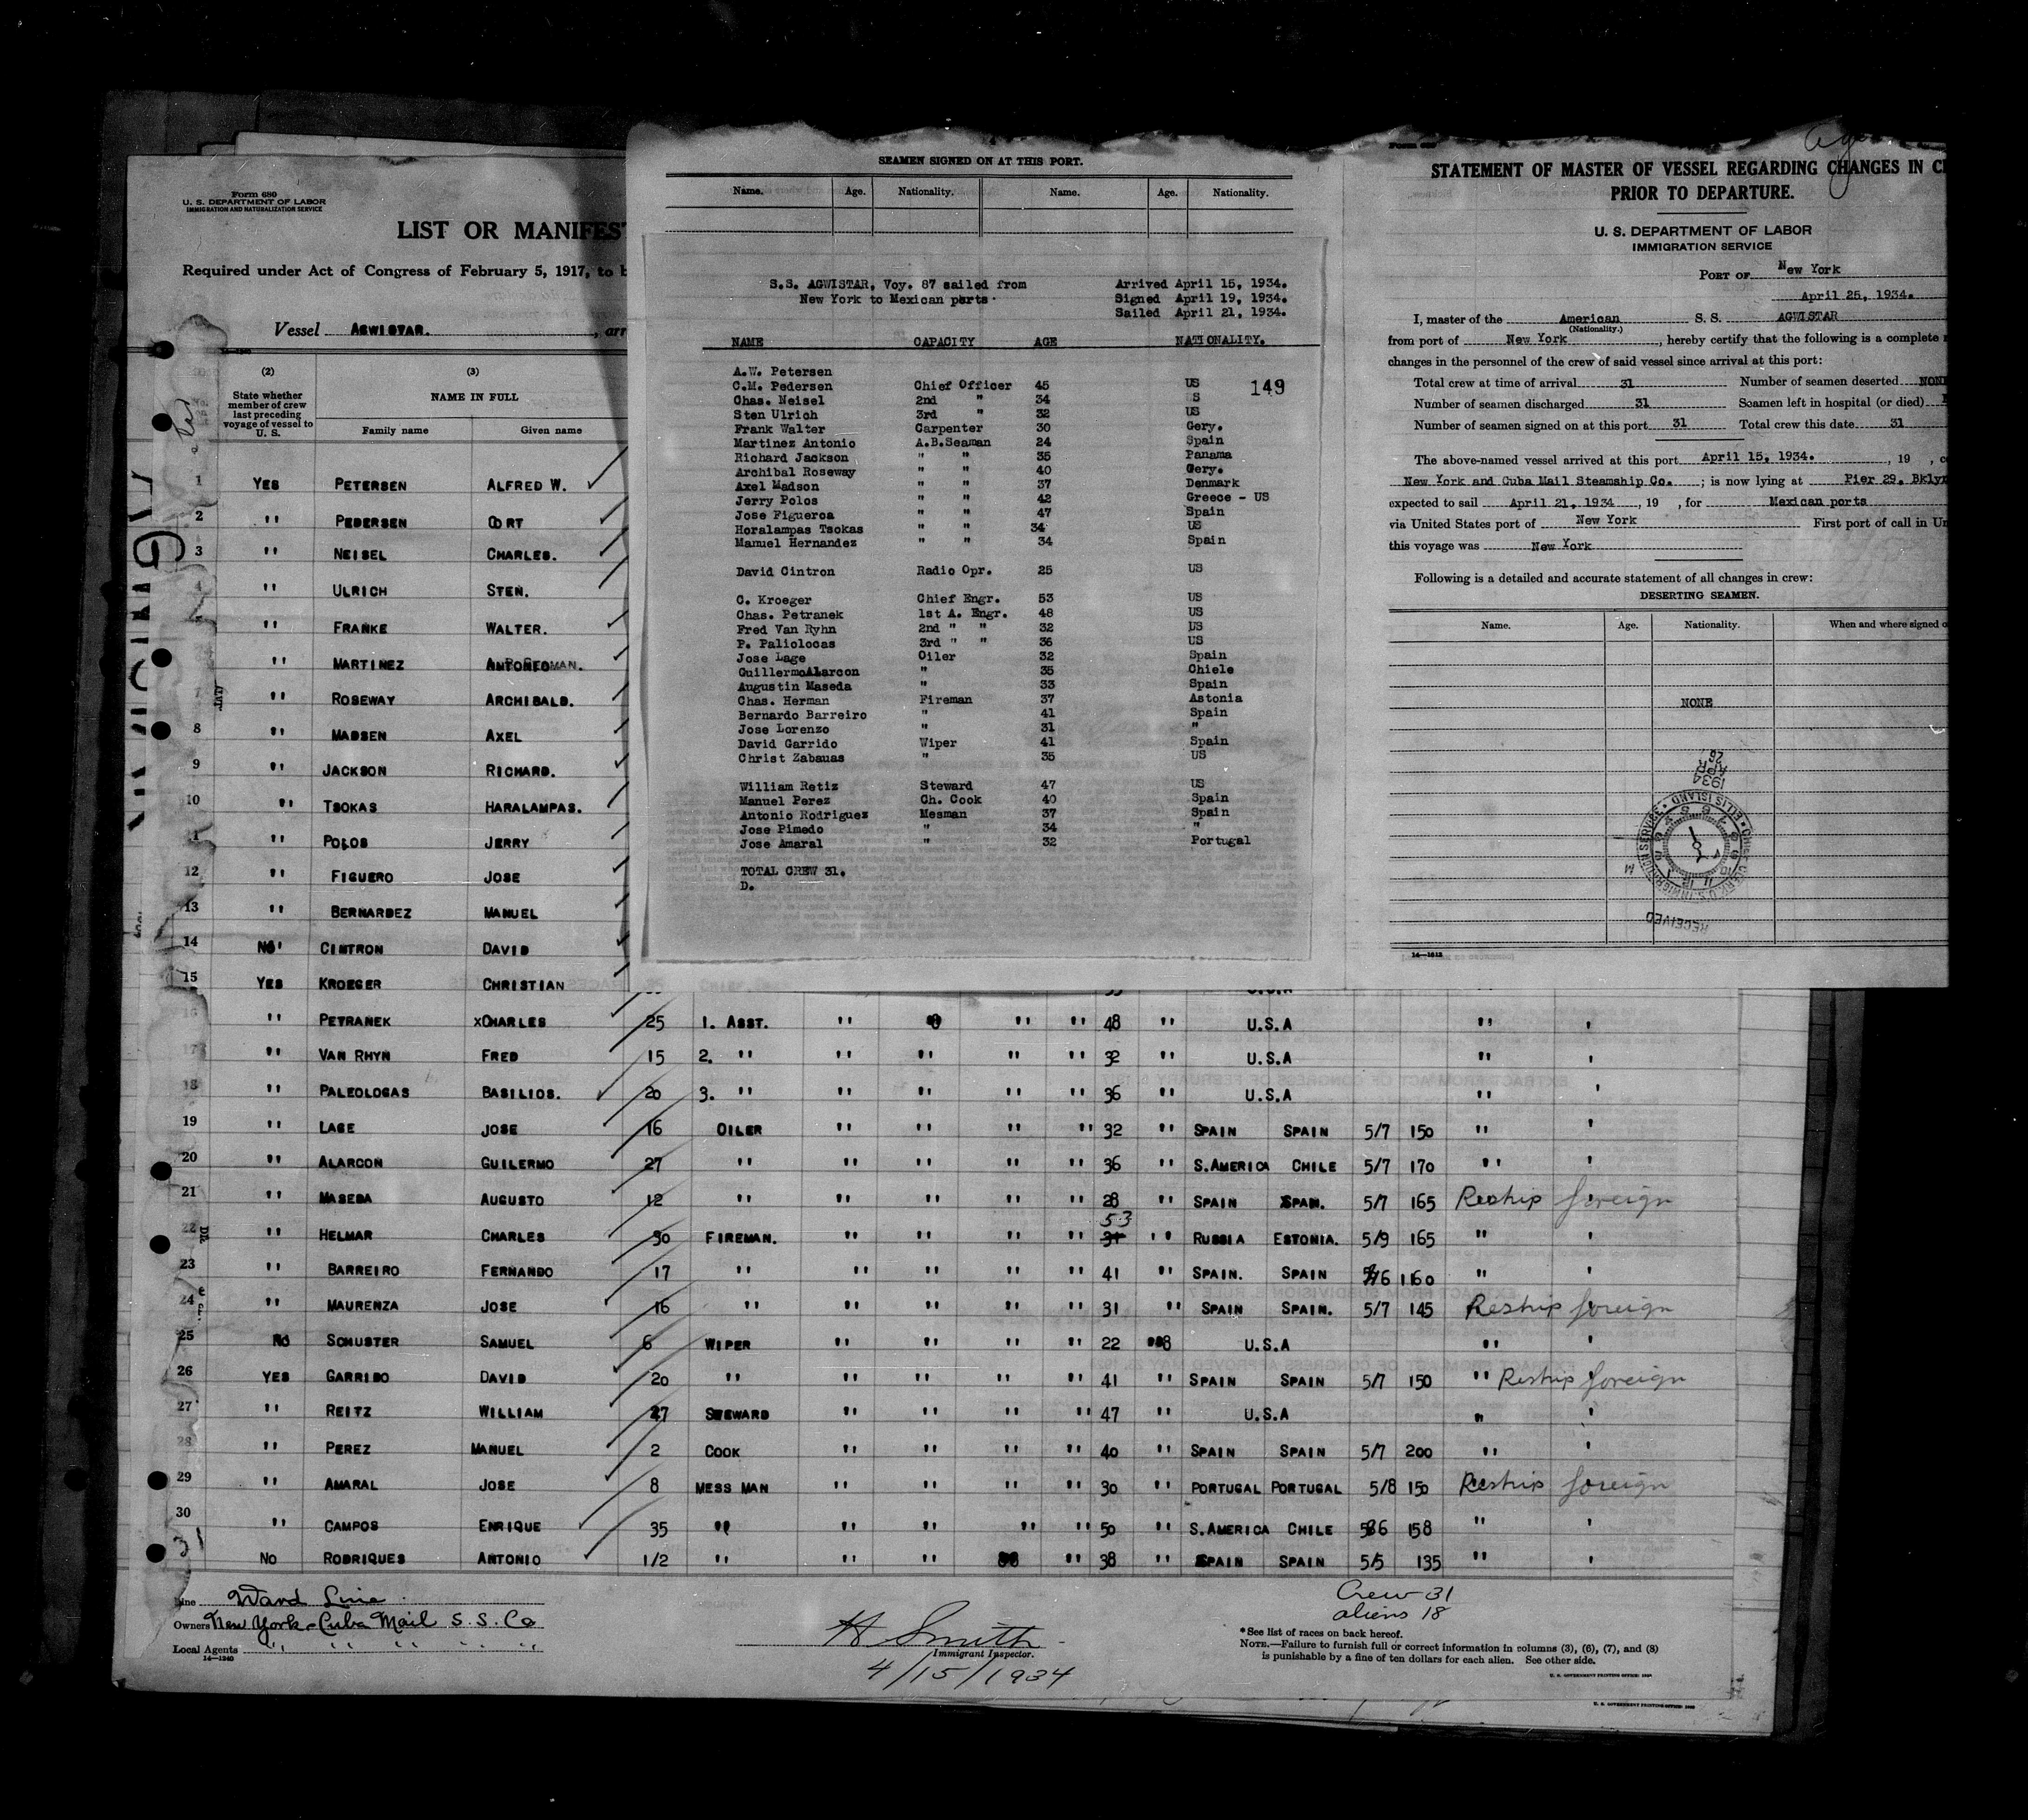 Form 680
U. S. DEPARTMENT OF LABOR
IMMIGRATION AND NATURALIZATION SERVICE
LIST OR MANIFEST
Required under Act of Congress of February 5, 1917, to b
Vessel AGWISTAR. , arr
(2) (3)
State whether member of crew last preceding voyage of vessel to U. S.
NAME IN FULL
Family name Given name
1 YES PETERSEN ALFRED W.
2 " PEDERSEN CORT
3 " NEISEL CHARLES.
4 " ULRICH STEN.
" FRANKE WALTER.
" MARTINEZ ANTONEO
7 " ROSEWAY ARCHIBALD.
8 " MADSEN AXEL
9 " JACKSON RICHARD.
10 " TSOKAS HARALAMPAS.
11 " POLOS JERRY
12 " FIGUERO JOSE
13 " BERNARDEZ MANUEL
14 NO CINTRON DAVID
15 YES KROEGER CHRISTIAN
16 " PETRANEK XCHARLES 25 1. ASST. " " " 48 " U.S.A " "
17 " VAN RHYN FRED 15 2. " " " " " 32 " U.S.A " "
18 " PALEOLOGAS BASILIOS. 20 3. " " " " " 36 " U.S.A " "
19 " LAGE JOSE 16 OILER " " " " 32 " SPAIN SPAIN 5/7 150 " "
20 " ALARCON GUILERMO 27 " " " " " 36 " S.AMERICA CHILE 5/7 170 " "
21 " MASEDA AUGUSTO 12 " " " " " 28 " SPAIN SPAN. 5/7 165 Reship foreign
22 " HELMAR CHARLES 30 FIREMAN. " " " " 53 " RUSSIA ESTONIA. 5/9 165 " "
23 " BARREIRO FERNANDO 17 " " " " " 41 " SPAIN. SPAIN 5/6 160 " "
24 " MAURENZA JOSE 16 " " " " " 31 " SPAIN SPAIN. 5/7 145 Reship foreign
25 NO SCHUSTER SAMUEL 6 WIPER " " " " 22 " U.S.A " "
26 YES GARRIDO DAVID 20 " " " " " 41 " SPAIN SPAIN 5/7 150 " Reship foreign
27 " REITZ WILLIAM 27 STEWARD " " " " 47 " U.S.A " "
28 " PEREZ MANUEL 2 COOK " " " " 40 " SPAIN SPAIN 5/7 200 " "
29 " AMARAL JOSE 8 MESS MAN " " " " 30 " PORTUGAL PORTUGAL 5/8 150 Reship foreign
30 " CAMPOS ENRIQUE 35 " " " " " 50 " S.AMERICA CHILE 5 6 158 " "
31 NO RODRIQUES ANTONIO 1/2 " " " " 38 " SPAIN SPAIN 5/5 135 " "
Line Ward Line
Owners New York-Cuba Mail S. S. Co
Local Agents " " " " "
14—1240
H Smith
Immigrant Inspector.
4/15/1934
Crew 31
aliens 18
*See list of races on back hereof.
NOTE.—Failure to furnish full or correct information in columns (3), (6), (7), and (8)
is punishable by a fine of ten dollars for each alien. See other side.
U. S. GOVERNMENT PRINTING OFFICE
U. S. GOVERNMENT PRINTING OFFICE
SEAMEN SIGNED ON AT THIS PORT.
Name. Age. Nationality. Name. Age. Nationality.
S.S. AGWISTAR, Voy. 87 sailed from Arrived April 15, 1934.
New York to Mexican ports. Signed April 19, 1934.
Sailed April 21, 1934.
NAME CAPACITY AGE NATIONALITY.
A.W. Petersen
C.M. Pedersen Chief Officer 45 US 149
Chas. Neisel 2nd " 34 S
Sten Ulrich 3rd " 32 US
Frank Walter Carpenter 30 Gery.
Martinez Antonio A.B.Seaman 24 Spain
Richard Jackson " " 35 Panama
Archibal Roseway " " 40 Gery.
Axel Madson " " 37 Denmark
Jerry Polos " " 42 Greece - US
Jose Figueroa " " 47 Spain
Horalampas Tsokas " " 34 US
Manuel Hernandez " " 34 Spain
David Cintron Radio Opr. 25 US
C. Kroeger Chief Engr. 53 US
Chas. Petranek 1st A. Engr. 48 US
Fred Van Ryhn 2nd " " 32 US
P. Paliolocas 3rd " " 36 US
Jose Lage Oiler 32 Spain
GuillermoAlarcon " 35 Chiele
Augustin Maseda " 33 Spain
Chas. Herman Fireman 37 Astonia
Bernardo Barreiro " 41 Spain
Jose Lorenzo " 31 "
David Garrido Wiper 41 Spain
Christ Zabauas " 35 US
William Retiz Steward 47 US
Manuel Perez Ch. Cook 40 Spain
Antonio Rodriguez Mesman 37 Spain
Jose Pimedo " 34 "
Jose Amaral " 32 Portugal
TOTAL CREW 31.
D.
STATEMENT OF MASTER OF VESSEL REGARDING CHANGES IN C
PRIOR TO DEPARTURE.
U. S. DEPARTMENT OF LABOR
IMMIGRATION SERVICE
PORT OF New York
April 25, 1934.
I, master of the American S. S. AGWISTAR
(Nationality.)
from port of New York , hereby certify that the following is a complete
changes in the personnel of the crew of said vessel since arrival at this port:
Total crew at time of arrival 31 Number of seamen deserted NONE
Number of seamen discharged 31 Seamen left in hospital (or died)
Number of seamen signed on at this port 31 Total crew this date 31
The above-named vessel arrived at this port April 15, 1934. , 19 , c
New York and Cuba Mail Steamship Co. ; is now lying at Pier 29. Bklyn
expected to sail April 21, 1934 , 19 , for Mexican ports
via United States port of New York First port of call in Un
this voyage was New York
Following is a detailed and accurate statement of all changes in crew:
DESERTING SEAMEN.
Name. Age. Nationality. When and where signed o
NONE
1934 APR 26
CHIEF CLERK U.S. IMMIGRATION SERVICE • ELLIS ISLAND •
RECEIVED
14—1512